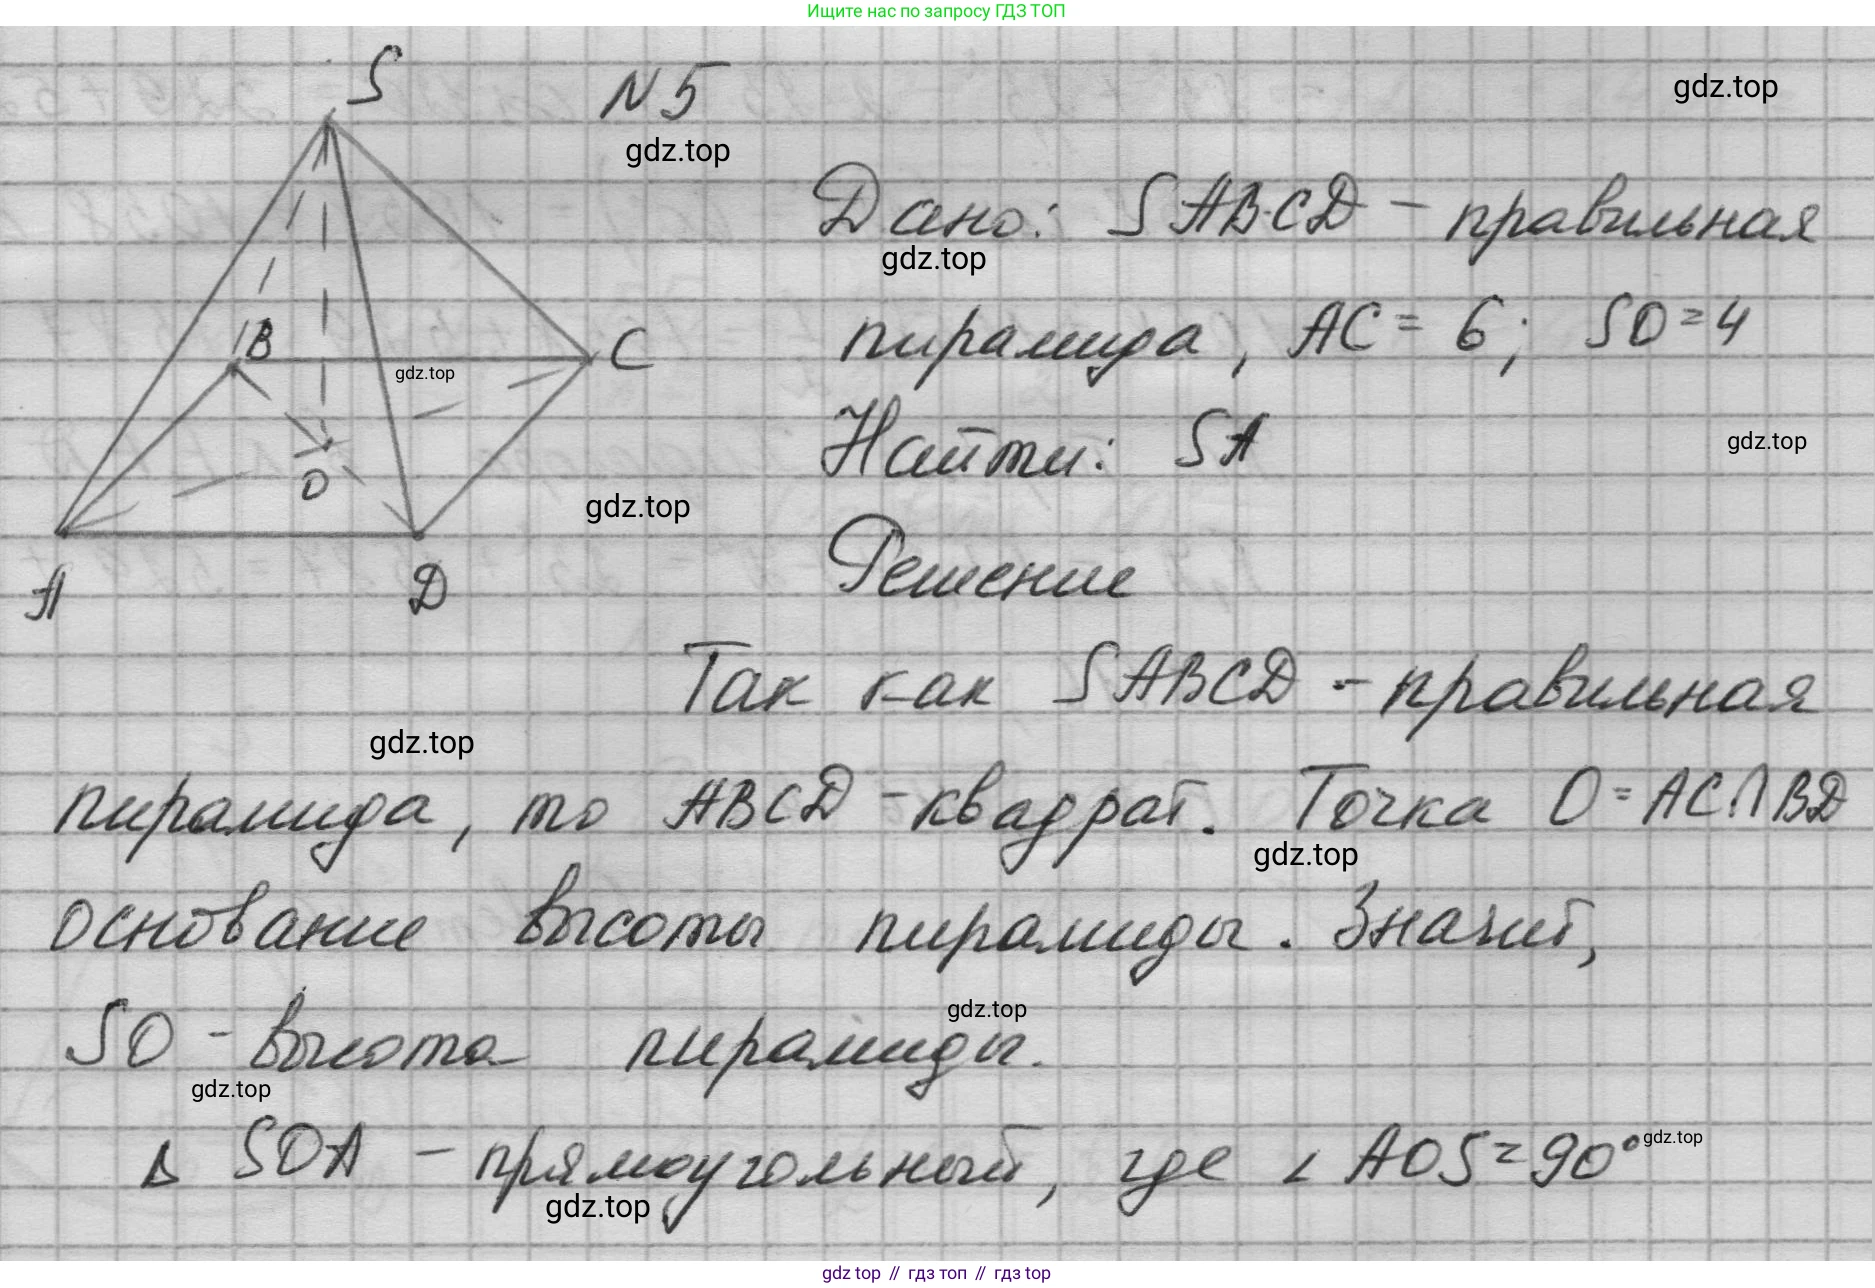 Ищите нас по запросу ГДЗ ТОП
S
N 5
gdz.top
gdz.top
Дано: SABCD – правильная
gdz.top
пирамида, AC = 6; SO = 4
B
C
gdz.top
Найти: SA
gdz.top
O
gdz.top
Решение
A
D
Так как SABCD – правильная
gdz.top
пирамида, то ABCD – квадрат. Точка O = AC∩BD
gdz.top
основание высоты пирамиды. Значит,
gdz.top
SO – высота пирамиды.
gdz.top
Δ SOA – прямоугольный, где ∠ AOS = 90°
gdz.top
gdz.top
gdz top // гдз топ // gdz top